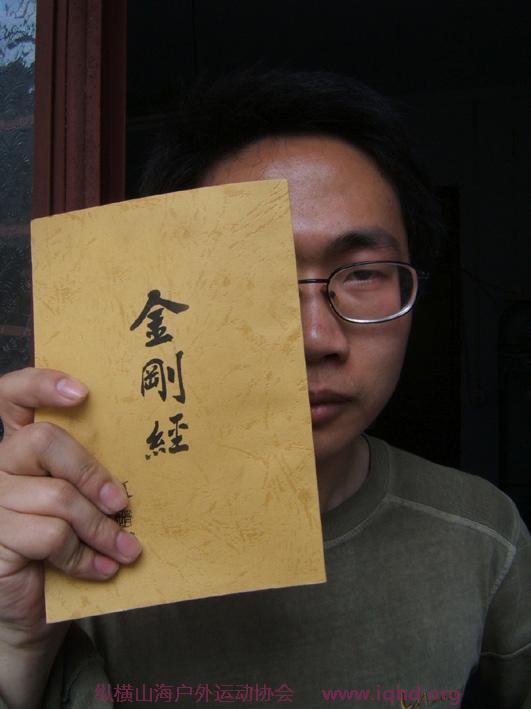 金剛經
纵横山海户外运动协会 www.iqhd.org